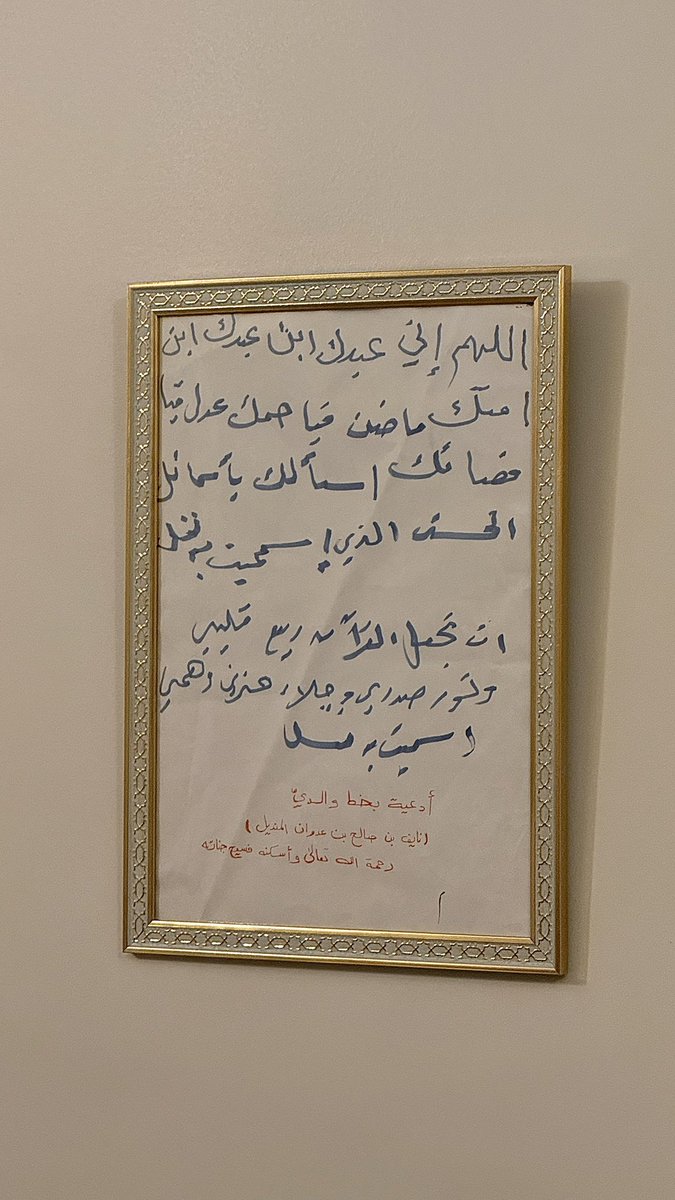 اللهم إني عبدك ابن عبدك ابن
امتك ماضٍ فيا حمك عدل فيا
قضائك اسألك بأسمائك
الحسنى الذي إسمميت به نفسك
ان تجعل القرآن ربيع قلبي
ونور صدري وجلاء حزني وهمي
اسميت به
أدعية بخط والديّ
(نايف بن صالح بن عدوان المنديل)
رحمة الله تعالى وأسكنه فسيح جناته